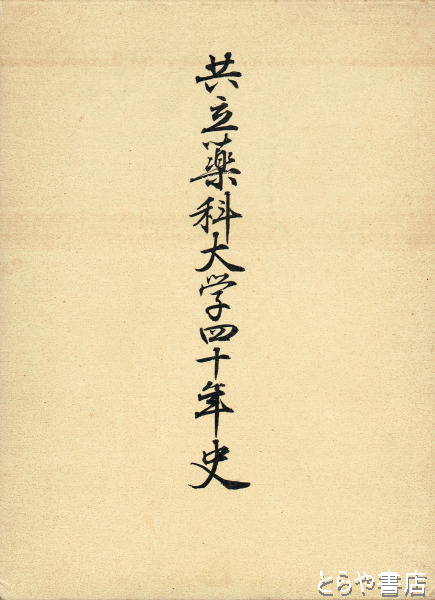 共立薬科大学四十年史
とらや書店